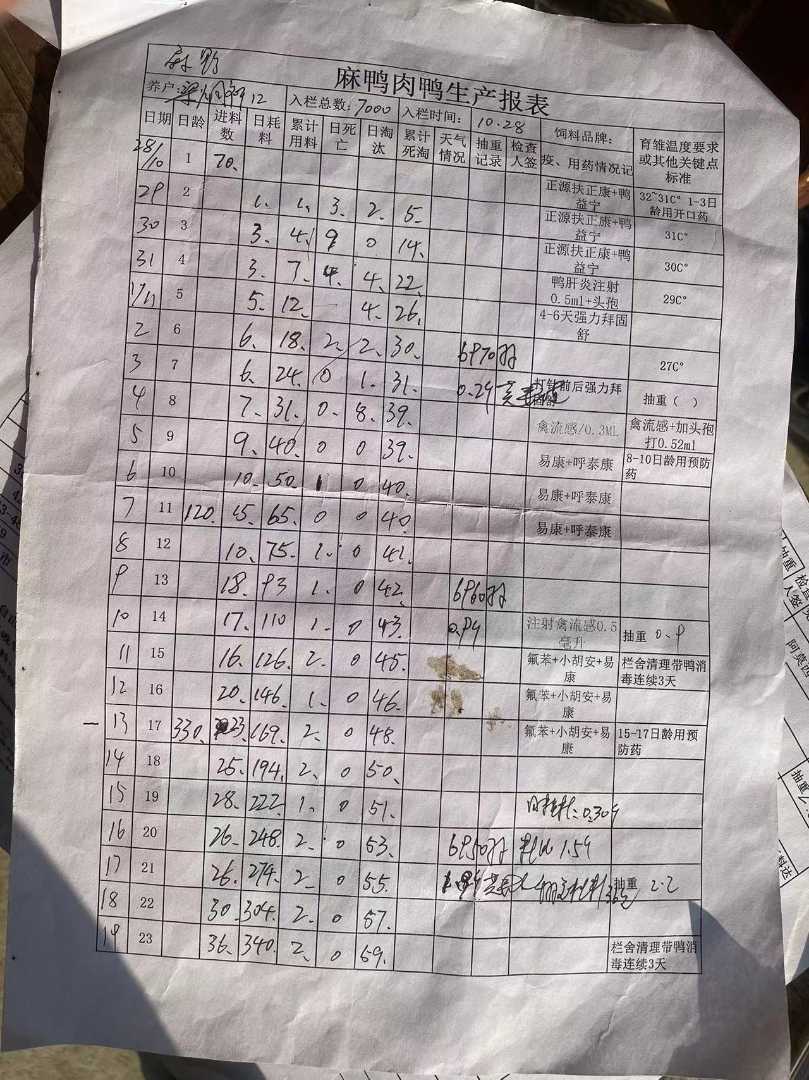 麻鸭肉鸭生产报表
养户: 12 入栏总数: 7000 入栏时间: 10.28 饲料品牌:
日期 日龄 进料数 日耗料 累计用料 日死亡 日淘汰 累计死淘 天气情况 抽重记录 检查人签 疫、用药情况记 育雏温度要求或其他关键点标准
28/10 1 70.
29 2 1. 1. 3. 2. 5. 正源扶正康+鸭益宁 32~31C° 1-3日龄用开口药
30 3 3. 4. 9 0 14. 正源扶正康+鸭益宁 31C°
31 4 3. 7. 4. 4. 22. 正源扶正康+鸭益宁 30C°
1/11 5 5. 12. 4. 26. 鸭肝炎注射0.5ml+头孢 29C°
2 6 6. 18. 2. 2. 30. 6970羽 4-6天强力拜固舒 27C°
3 7 6. 24. 0 1. 31. 0.29 打针前后强力拜 抽重（ ）
4 8 7. 31. 0. 8. 39. 禽流感/0.3ML 禽流感+加头孢打0.52ml
5 9 9. 40. 0 0 39. 易康+呼泰康 8-10日龄用预防药
6 10 10. 50. 1 0 40. 易康+呼泰康
7 11 120. 15. 65. 0 0 40. 易康+呼泰康
8 12 10. 75. 1. 0 41.
9 13 18. 93 1. 0 42. 6960羽
10 14 17. 110 1. 0 43. 0.94 注射禽流感0.5毫升 抽重 0.9
11 15 16. 126. 2. 0 45. 氟苯+小胡安+易康 栏舍清理带鸭消毒连续3天
12 16 20. 146. 1. 0 46. 氟苯+小胡安+易康
13 17 330. 23. 169. 2. 0 48. 氟苯+小胡安+易康 15-17日龄用预防药
14 18 25. 194. 2. 0 50.
15 19 28. 222. 1. 0 51. 日耗料:0.309
16 20 26. 248. 2. 0 53. 6950羽 料比 1.59
17 21 26. 274. 2. 0 55. 抽重 2.2
18 22 30. 304. 2. 0 57.
19 23 36. 340. 2. 0 59. 栏舍清理带鸭消毒连续3天